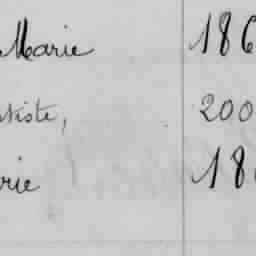 Marie 186
tiste, 200
rie 18